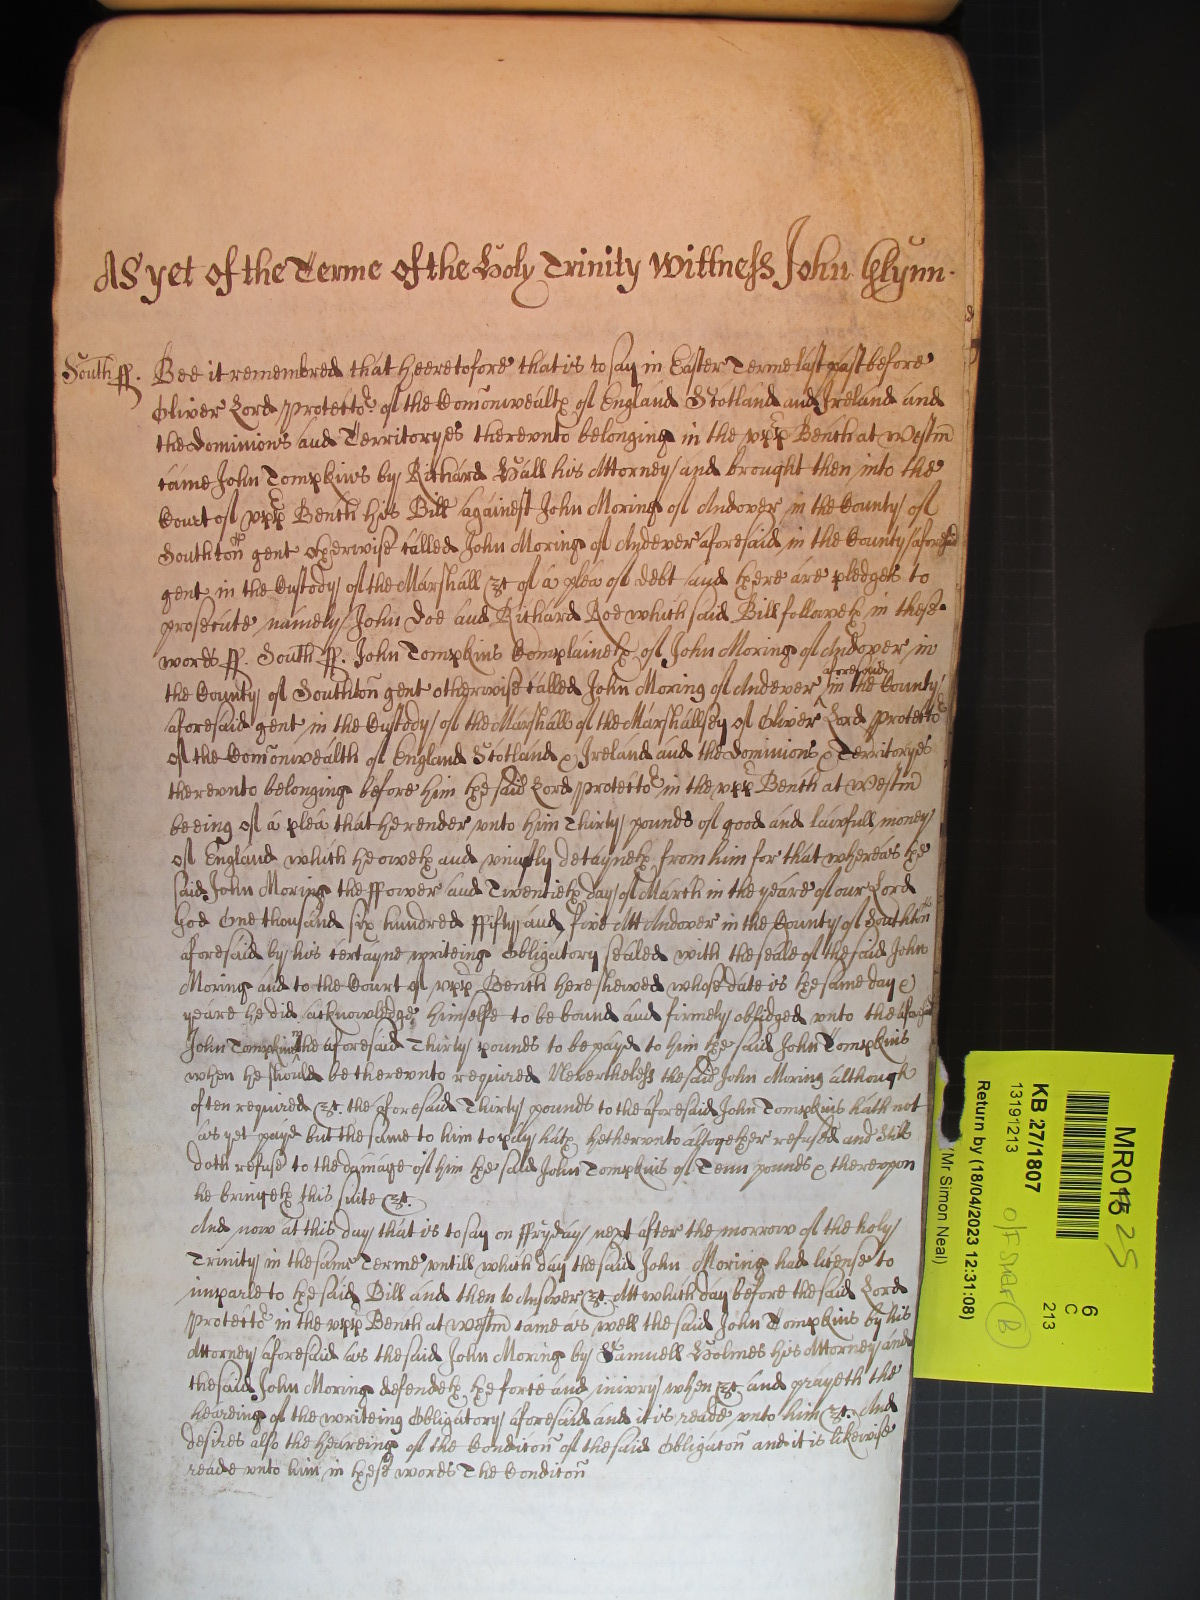 As yet of the Terme of the Holy Trinity Wittness John Glynn.
South ss. Bee it remembred that heeretofore that is to say in Easter Terme last past before
Oliver Lord Protector of the Comonwealth of England Scotland and Ireland and
the dominions and Territoryes therevnto belonging in the vpp Bench at Westm
came John Tompkins by Richard Hall his Attorney and brought then into the
Court of vpp Bench his Bill against John Moring of Andover in the County of
Southton gent otherwise called John Moring of Andever aforesaid in the County aforesaid
gent in the Custody of the Marshall &c of a plea of debt and there are pledges to
prosecute namely John Doe and Richard Roe which said Bill followeth in these
words ss. South ss. John Tompkins Complaineth of John Moring of Andover in
the County of Southton gent otherwise called John Moring of Andever aforesaid in the County
aforesaid gent in the Custody of the Marshall of the Marshallsey of Oliver Lord Protector
of the Comonwealth of England Scotland & Ireland and the dominions & Territoryes
therevnto belonging before him the said Lord Protector in the vpp Bench at Westm
beeing of a plea that he render vnto him Thirty pounds of good and lawfull money
of England which he oweth and vniustly detayneth from him for that whereas the
said John Moring the ffower and Twentieth day of March in the yeare of our Lord
God One thousand six hundred ffifty and five Att Andover in the County of Southton
aforesaid by his certayne writeing Obligatory sealed with the seale of the said John
Moring and to the Court of vpp Bench here shewed whose date is the same day &
yeare he did acknowledge himselfe to be bound and firmely obliged vnto the aforesaid
John Tompkins in the aforesaid Thirty pounds to be payd to him the said John Tompkins
when he should be therevnto required Nevertheless the said John Moring although
often required &c. the aforesaid Thirty pounds to the aforesaid John Tompkins hath not
as yet payd but the same to him to pay hath hethervnto altogether refused and still
doth refuse to the damage of him the said John Tompkins of Tenn pounds & therevpon
he bringeth this suite &c.
And now at this day that is to say on ffryday next after the morrow of the holy
Trinity in the same Terme vntill which day the said John Moring had license to
imparle to the said Bill and then to Answer &c. Att which day before the said Lord
Protector in the vpp Bench at Westm came as well the said John Tompkins by his
Attorney aforesaid as the said John Moring by Samuell Holmes his Attorney and
the said John Moring defendeth the force and iniury when &c and prayeth the
heareing of the writeing Obligatory aforesaid and it is reade vnto him &c. And
desires also the heareing of the Conditon of the said Obligaton and it is likewise
reade vnto him in these words The Conditon
MR01 25
6
C
213
KB 27/1807
13191213
Return by (18/04/2023 12:31:08)
(Mr Simon Neal)